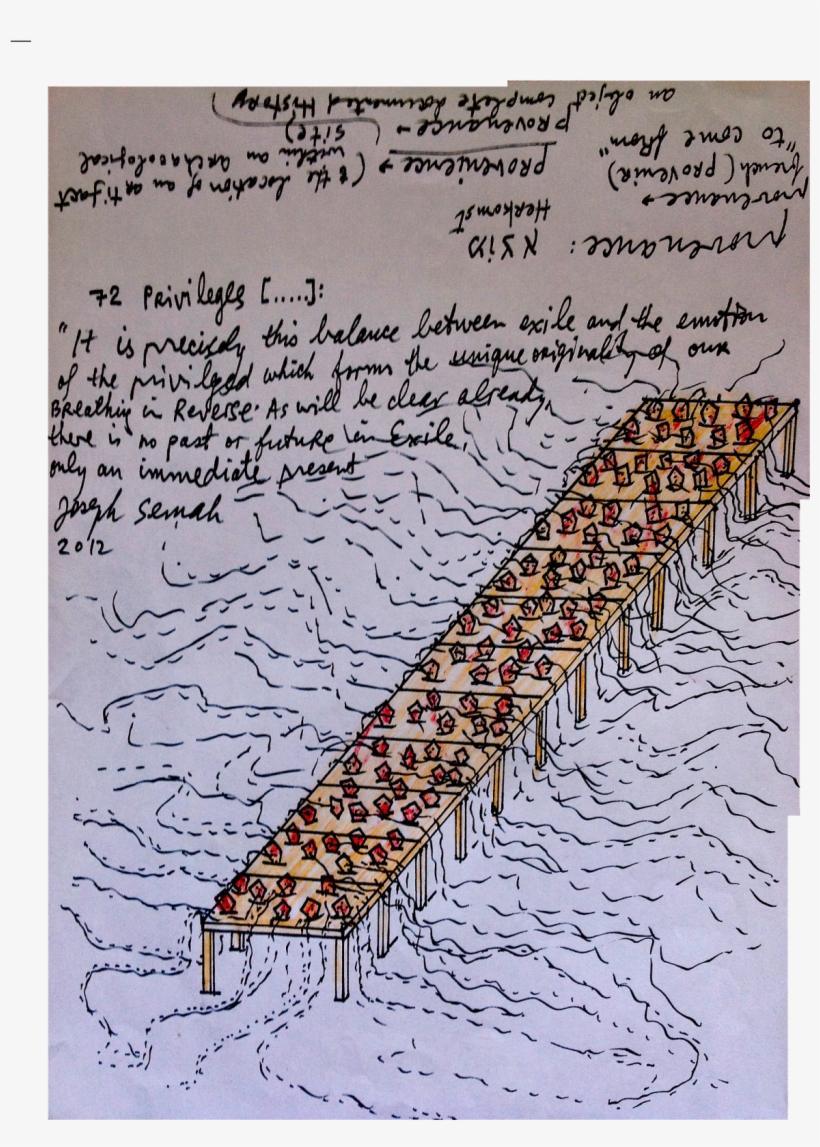 provenance: מוצא
Herkomst
provenance →
french (provenir)
"to come from"
provenience → (& the location of an artifact
within an archaeological
site)
provenance → (
an object complete documented History)
72 Privileges [.....]:
"It is precisely this balance between exile and the emotion
of the privileged which forms the unique originality of our
Breathing in Reverse. As will be clear already,
there is no past or future in Exile,
only an immediate present
Joseph Semah
2012